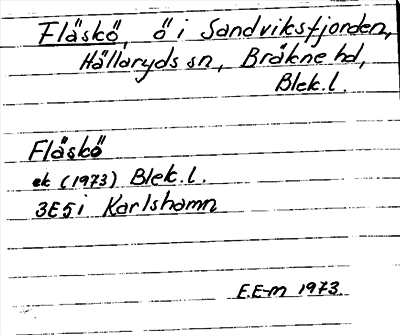 Fläskö, ö i Sandviksfjorden,
Hällaryds sn, Bräkne hd,
Blek. l.
Fläskö
ek (1973) Blek. l.
3E5i Karlshamn
E.E-m 1973.